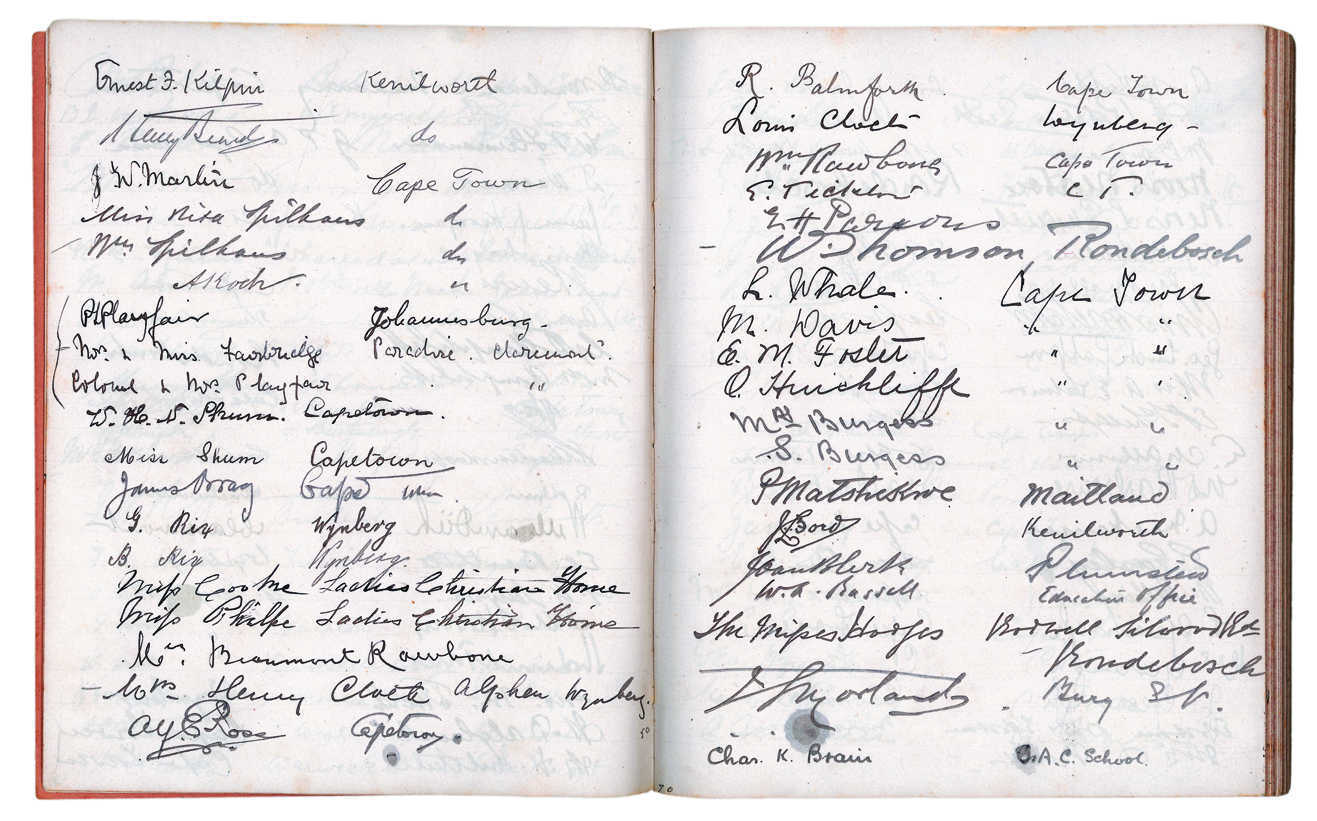 Ernest F. Kilpin Kenilworth
Henry Beard do
J W. Marlin Cape Town
Miss Nita Spilhaus do
Mrs Spilhaus do
A Koch. "
P Playfair Johannesburg.
Mr. & Mrs Fairbridge Paradise. Claremont.
Colonel & Mrs Playfair "
W. H. N. Shum. Capetown.
Miss Shum Capetown
James Cape Town.
G. Rix Wynberg
B. Rix Wynberg.
Miss Cooke Ladies Christian Home
Miss Philpe Ladies Christian Home
Mrs. Beaumont Rawbone
– Mrs. Henry Cloete Alphen Wynberg.
Rose Capetown.
50
R. Balmforth Cape Town
Louis Cloete Wynberg –
Wm Rawbone Cape Town
E. C T.
E H Parsons
– W. Thomson, Rondebosch
L. Whale. Cape Town
M. Davis " "
E. M. Foster " "
C. Hinchliffe " "
Mrs Burgess " "
S. Burgess " "
P Matshikwe Maitland
J Kenilworth
Plumstead
W. A. Russell. Education Office
The Misses Hodges Rd
– Rondebosch
Bury St.
Chas. K. Brain S.A.C. School.
70